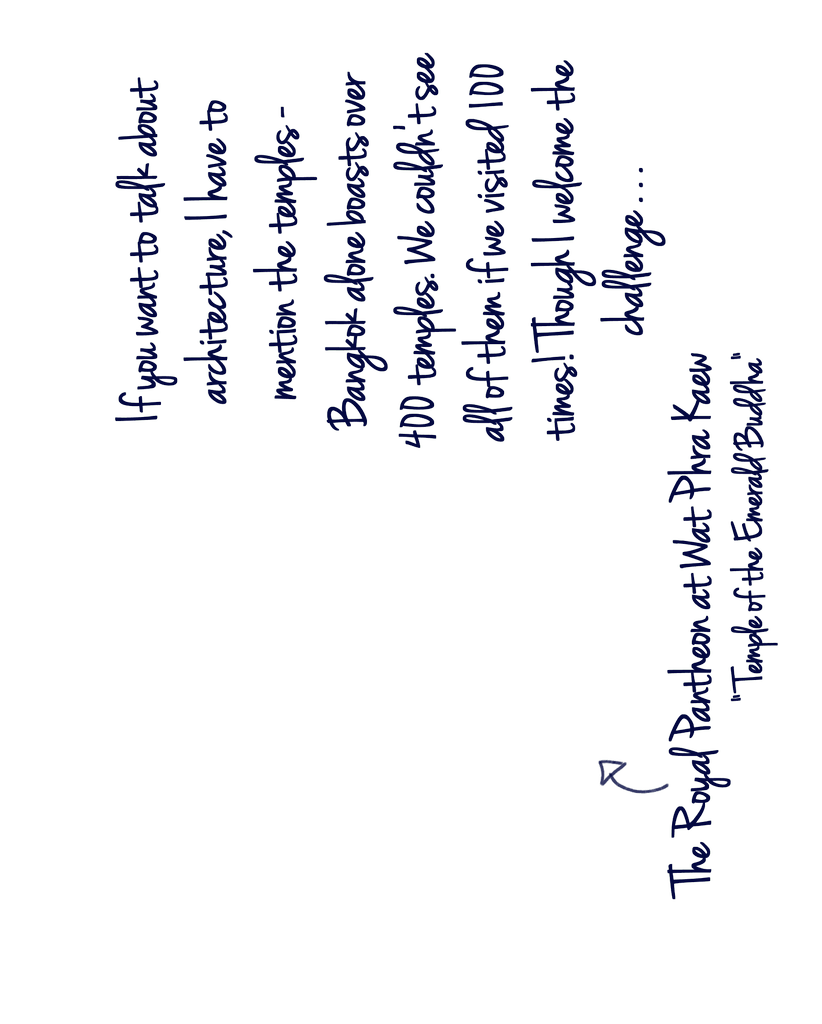 If you want to talk about
architecture, I have to
mention the temples -
Bangkok alone boasts over
400 temples. We couldn't see
all of them if we visited 100
times! Though I welcome the
challenge...
The Royal Pantheon at Wat Phra Kaew
"Temple of the Emerald Buddha"